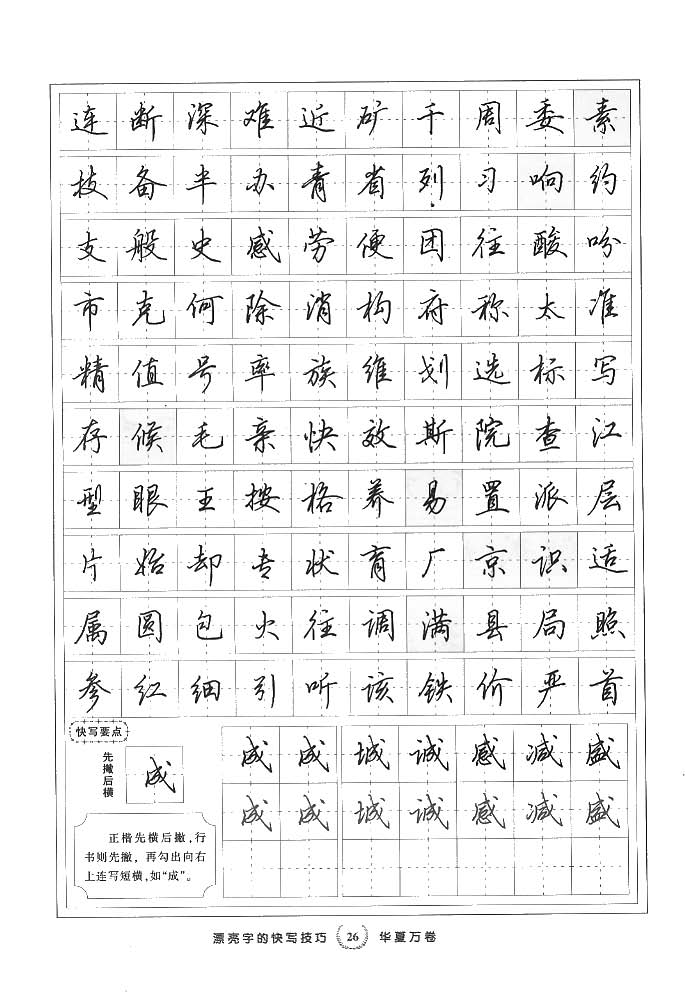 连断深难近矿千周委素
技备半办青省列习响约
支般史感劳便团往酸
市克何除消构府称太准
精值号率族维划选标写
存候毛亲快效斯院查江
型眼王按格养易置派层
片始却专状育厂京识适
属圆包火往调满县局照
参红细引听该铁价严首
快写要点
先撇后横
成
正楷先横后撇，行
书则先撇，再勾出向右
上连写短横，如“成”。
成成城诚感减盛
成成城诚感减盛
漂亮字的快写技巧 26 华夏万卷